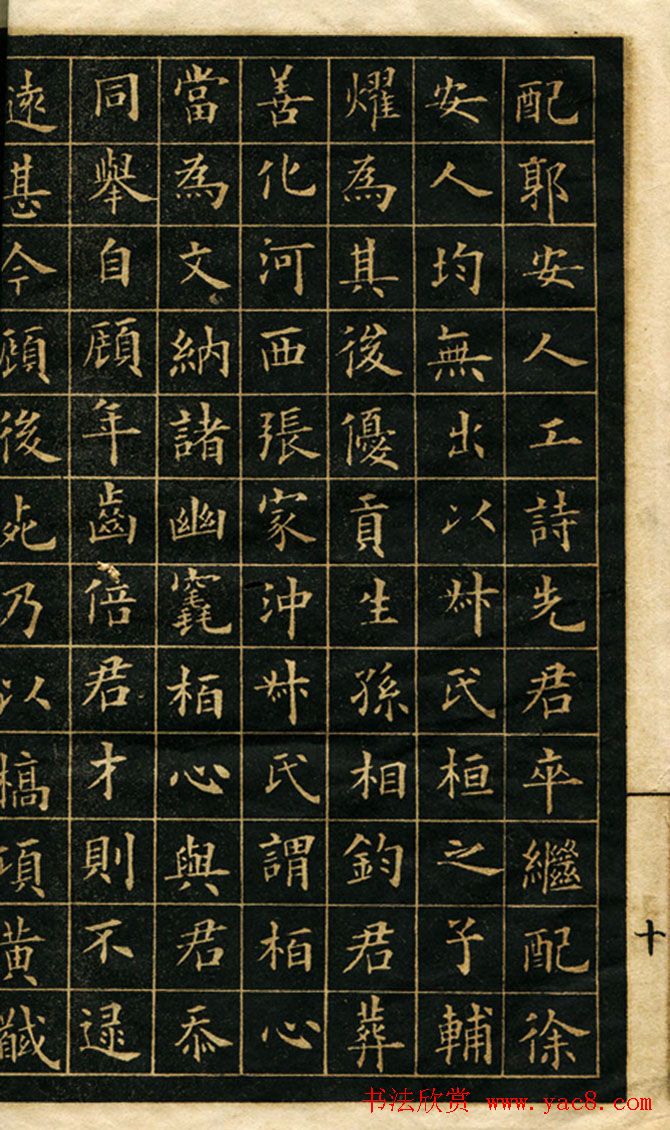 配郭安人工詩先君卒繼配徐
安人均無出以叔氏桓之子輔
燿為其後優貢生孫相鈞君葬
善化河西張家沖叔氏謂栢心
當為文納諸幽竁栢心與君忝
同舉自顧年齒倍君才則不逮
遠甚今顧後死乃以槁項黃馘
十
书法欣赏 www.yac8.com